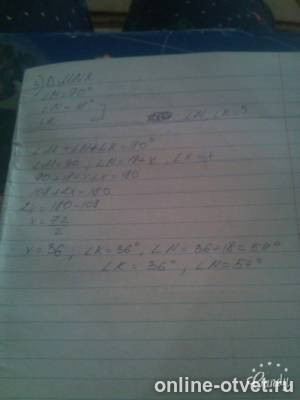 5) Δ MNK
∠M=90°
∠N=18°
∠K
∠N, ∠K-?
∠M+∠N+∠K=180°
∠M=90, ∠N=18+x, ∠K=x
90+18+x+x=180
108+2x=180
2x=180-108
x=72/2
x=36; ∠K=36°, ∠N=36+18=54°
∠K=36°, ∠N=54°
Candy
online-otvet.ru